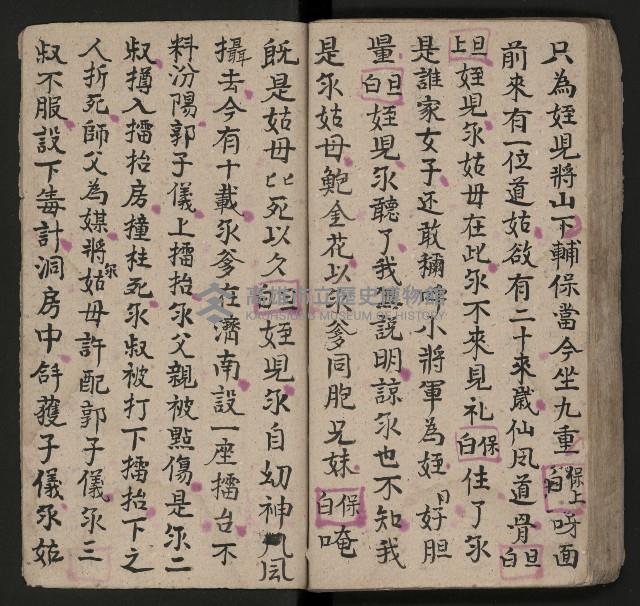 只為姪兒將山下輔保當今坐九重 保上白 呀面
前來有一位道姑欲有二十來歲仙風道骨 旦白
上旦 姪兒尔姑母在此尔不來見礼 保白 住了尔
是誰家女子还敢稱 小將軍為姪 曰好胆
量 旦白 姪兒尔聽了我 說明諒尔也不知我
是尔姑母鮑金花以尔爹同胞兄妹 保白 唵
既是姑母匕匕死以久 旦白 姪兒尔自幼神風
攝去今有十載尔爹在濟南設一座擂台不
料汾陽郭子儀上擂抬尔父親被點傷是尔二
叔撙入擂抬房撞柱死尔叔被打下擂抬下之
人折死師父為媒將尔姑母許配郭子儀尔三
叔不服設下毒計洞房中斛獲子儀尔姑
高雄市立歷史博物館
KAOHSIUNG MUSEUM OF HISTORY